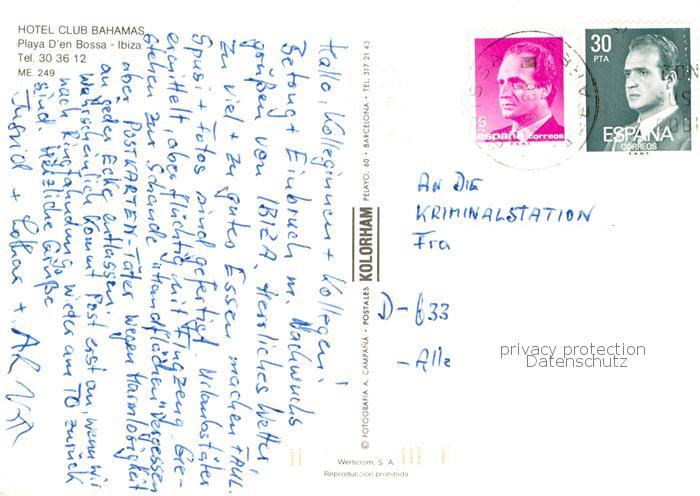 HOTEL CLUB BAHAMAS
Playa D'en Bossa - Ibiza
Tel. 30 36 12
ME. 249
Hallo, Kolleginnen + Kollegen!
Betrug + Einbruch m. Nachwuchs
grüßen von IBIZA. Herrliches Wetter,
zu viel + zu gutes Essen machen FAUL.
Spusi + Fotos sind gefertigt. Urlaubstäter
ermittelt, aber flüchtig mit Flugzeug. Ge-
stehen zur Schande, Handflächen vergessen
aber POSTKARTEN-Täter wegen Harmlosigkeit
an jeder Ecke entlassen.
Wahrscheinlich kommt Post erst an, wenn wir
nach Ringfahndung wieder am TO zurück
sind. Herzliche Grüße
Ingrid + Lothar +
© FOTOGRAFIA A. CAMPAÑÁ • POSTALES KOLORHAM PELAYO, 60 • BARCELONA • TEL. 317 21 43
5
españa correos
F.N.M.T.
30
PTA
ESPAÑA
CORREOS
F.N.M.T.
AN DIE
KRIMINALSTATION
Fra
D-633
-Alle
privacy protection
Datenschutz
Werticrom, S. A.
Reproduccion prohibida